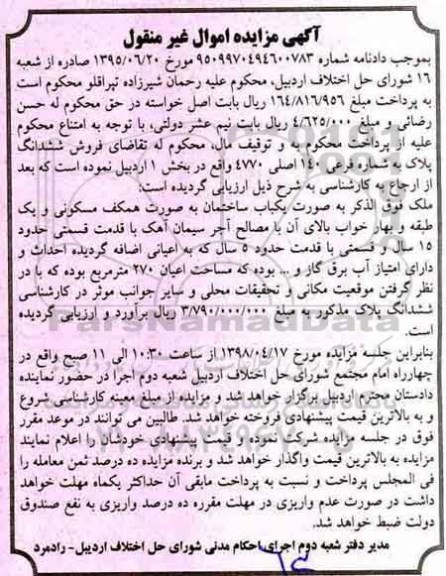 آگهی مزایده اموال غیر منقول
بموجب دادنامه شماره ۹۵۰۹۹۷۰۴۹۴۶۰۰۷۸۳ مورخ ۱۳۹۵/۰۶/۲۰ صادره از شعبه
۱۶ شورای حل اختلاف اردبیل، محکوم علیه رحمان شیرزاده تپراقلو محکوم است
به پرداخت مبلغ ۱۶۴/۸۱۶/۹۵۶ ریال بابت اصل خواسته در حق محکوم له حسن
رضائی و مبلغ ۴/۶۲۵/۰۰۰ ریال بابت نیم عشر دولتی، با توجه به امتناع محکوم
علیه از پرداخت محکوم به و توقیف مال، محکوم له تقاضای فروش ششدانگ
پلاک به شماره فرعی ۱۴۰ اصلی ۴۷۷۰ واقع در بخش ۱ اردبیل نموده است که بعد
از ارجاع به کارشناسی به شرح ذیل ارزیابی گردیده است:
ملک فوق الذکر به صورت یکباب ساختمان به صورت همکف مسکونی و یک
طبقه و بهار خواب بالای آن با مصالح آجر سیمان آهک با قدمت قسمتی حدود
۱۵ سال و قسمتی با قدمت حدود ۵ سال که به اعیانی اضافه گردیده احداث و
دارای امتیاز آب برق گاز و ... بوده که مساحت اعیان ۲۷۰ مترمربع بوده که با در
نظر گرفتن موقعیت مکانی و تحقیقات محلی و سایر جوانب موثر در کارشناسی
ششدانگ پلاک مذکور به مبلغ ۳/۷۹۰/۰۰۰/۰۰۰ ریال برآورد و ارزیابی گردیده
است.
بنابراین جلسه مزایده مورخ ۱۳۹۸/۰۴/۱۷ از ساعت ۱۰:۳۰ الی ۱۱ صبح واقع در
چهارراه امام مجتمع شورای حل اختلاف اردبیل شعبه دوم اجرا در حضور نماینده
دادستان محترم اردبیل برگزار خواهد شد و مزایده از مبلغ معینه کارشناسی شروع
و به بالاترین قیمت پیشنهادی فروخته خواهد شد. طالبین می توانند در موعد مقرر
فوق در جلسه مزایده شرکت نموده و قیمت پیشنهادی خودشان را اعلام نمایند
مزایده به بالاترین قیمت واگذار خواهد شد و برنده مزایده ده درصد ثمن معامله را
فی المجلس پرداخت و نسبت به پرداخت مابقی آن حداکثر یکماه مهلت خواهد
داشت در صورت عدم واریزی در مهلت مقرره ده درصد واریزی به نفع صندوق
دولت ضبط خواهد شد.
مدیر دفتر شعبه دوم اجرای احکام مدنی شورای حل اختلاف اردبیل- رادمرد
ParsNamadData